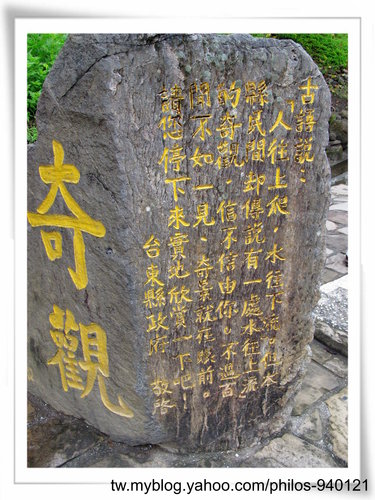 古諺說：
「人往上爬，水往下流。」但本
縣民間却傳說有一處水往上流
的奇觀，信不信由你。不過百
聞不如一見、奇景就在眼前。
請您停下來實地欣賞一下吧！
台東縣政府 敬啟
奇觀
tw.myblog.yahoo.com/philos-940121